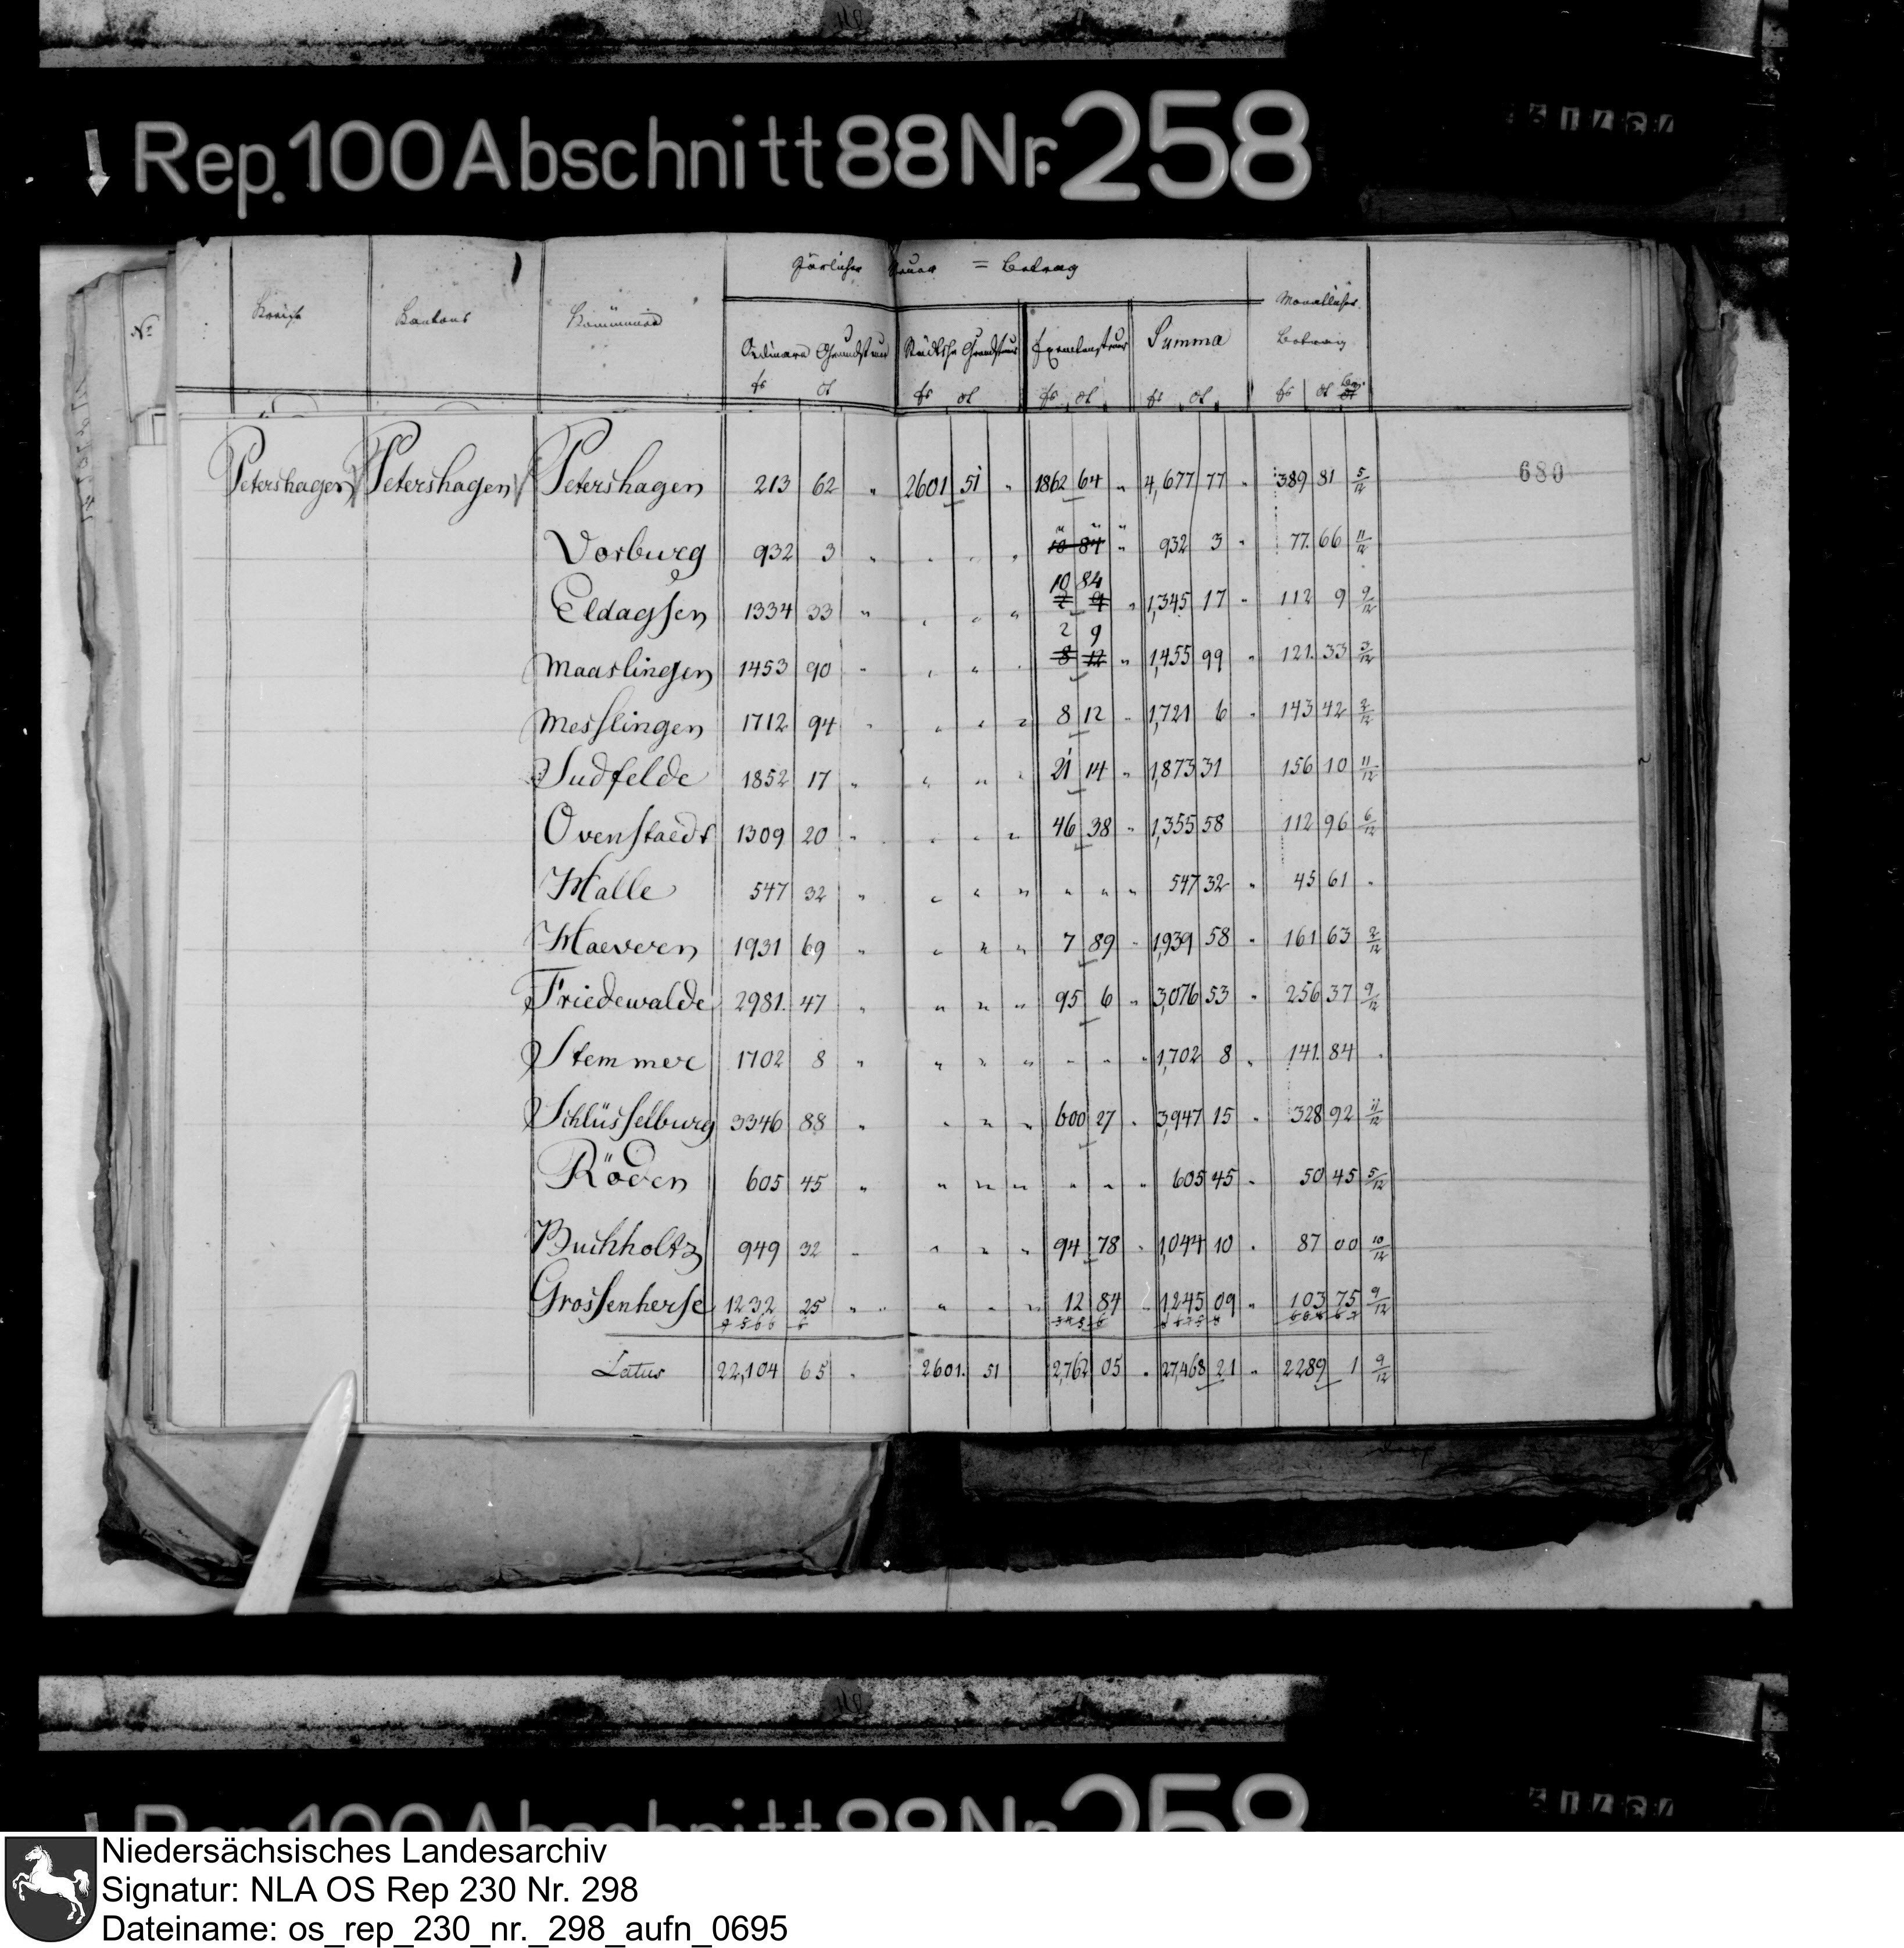 Rep. 100 Abschnitt 88 Nr. 258
Järlicher Steuer = Betrag
Monatlicher Betrag
Nr. Kreise Kantons Kommunen Ordinare Grundsteuer Städtsche Grundsteuer Exemtensteuer Summa
fr ct fr ct fr ct fr ct fr ct
680
Petershagen Petershagen Petershagen 213 62 " 2601 51 " 1862 64 " 4,677 77 " 389 81 5/12
Vorburg 932 3 " " " " 10 84 " " " 932 3 " 77. 66 11/12
Eldagsen 1334 33 " " " " 10 84 2 9 " 1,345 17 " 112 9 9/12
Maaslingen 1453 90 " " " " 2 9 8 12 " 1,455 99 " 121. 33 3/12
Messlingen 1712 94 " " " " 8 12 " 1,721 6 " 143 42 2/12
Sudfelde 1852 17 " " " " 21 14 " 1,873 31 156 10 11/12
Ovenstaedt 1309 20 " " " " 46 38 " 1,355 58 112 96 6/12
Halle 547 32 " " " " " " " 547 32 " 45 61 "
Haevern 1931 69 " " " " 7 89 " 1,939 58 " 161 63 2/12
Friedewalde 2981. 47 " " " " 95 6 " 3,076 53 " 256 37 9/12
Stemmer 1702 8 " " " " " " " 1,702 8 " 141. 84 "
Schlüsselburg 3346 88 " " " " 600 27 " 3,947 15 " 328 92 11/12
Röden 605 45 " " " " " " " 605 45 " 50 45 5/12
Buchholtz 949 32 " " " " 94 78 " 1,044 10 " 87 00 10/12
Grossenherse 1232 25 " " " " 12 84 " 1,245 09 " 103 75 9/12
Latus 22,104 65 " 2601. 51 2,762 05 " 27,468 21 " 2289 1 9/12
Rep. 100 Abschnitt 88 Nr. 258
Niedersächsisches Landesarchiv
Signatur: NLA OS Rep 230 Nr. 298
Dateiname: os_rep_230_nr._298_aufn_0695